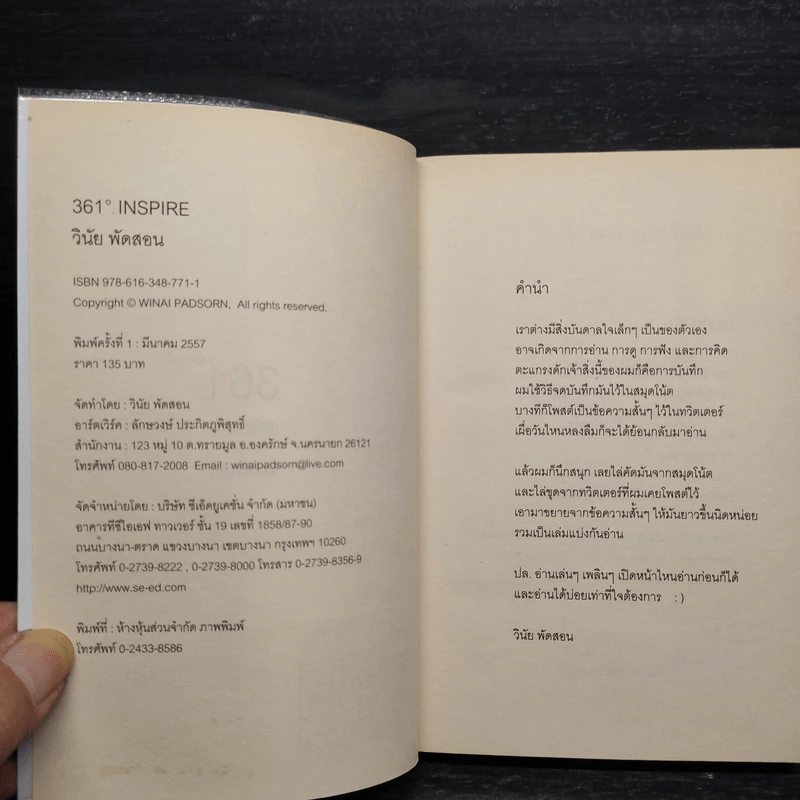 361°. INSPIRE
วินัย พัดสอน
ISBN 978-616-348-771-1
Copyright © WINAI PADSORN, All rights reserved.
พิมพ์ครั้งที่ 1 : มีนาคม 2557
ราคา 135 บาท
จัดทำโดย : วินัย พัดสอน
อาร์ตเวิร์ค : ลักษวงษ์ ประกิตภูพิสุทธิ์
สำนักงาน : 123 หมู่ 10 ต.ทรายมูล อ.องครักษ์ จ.นครนายก 26121
โทรศัพท์ 080-817-2008 Email : winaipadsorn@live.com
จัดจำหน่ายโดย : บริษัท ซีเอ็ดยูเคชั่น จำกัด (มหาชน)
อาคารทีซีไอเอฟ ทาวเวอร์ ชั้น 19 เลขที่ 1858/87-90
ถนนบางนา-ตราด แขวงบางนา เขตบางนา กรุงเทพฯ 10260
โทรศัพท์ 0-2739-8222 , 0-2739-8000 โทรสาร 0-2739-8356-9
http://www.se-ed.com
พิมพ์ที่ : ห้างหุ้นส่วนจำกัด ภาพพิมพ์
โทรศัพท์ 0-2433-8586
คำนำ
เราต่างมีสิ่งบันดาลใจเล็กๆ เป็นของตัวเอง
อาจเกิดจากการอ่าน การดู การฟัง และการคิด
ตะแกรงดักเจ้าสิ่งนี้ของผมก็คือการบันทึก
ผมใช้วิธีจดบันทึกมันไว้ในสมุดโน้ต
บางทีก็โพสต์เป็นข้อความสั้นๆ ไว้ในทวิตเตอร์
เผื่อวันไหนหลงลืมก็จะได้ย้อนกลับมาอ่าน
แล้วผมก็นึกสนุก เลยไล่คัดมันจากสมุดโน้ต
และไล่ขุดจากทวิตเตอร์ที่ผมเคยโพสต์ไว้
เอามาขยายจากข้อความสั้นๆ ให้มันยาวขึ้นนิดหน่อย
รวมเป็นเล่มแบ่งกันอ่าน
ปล. อ่านเล่นๆ เพลินๆ เปิดหน้าไหนอ่านก่อนก็ได้
และอ่านได้บ่อยเท่าที่ใจต้องการ : )
วินัย พัดสอน